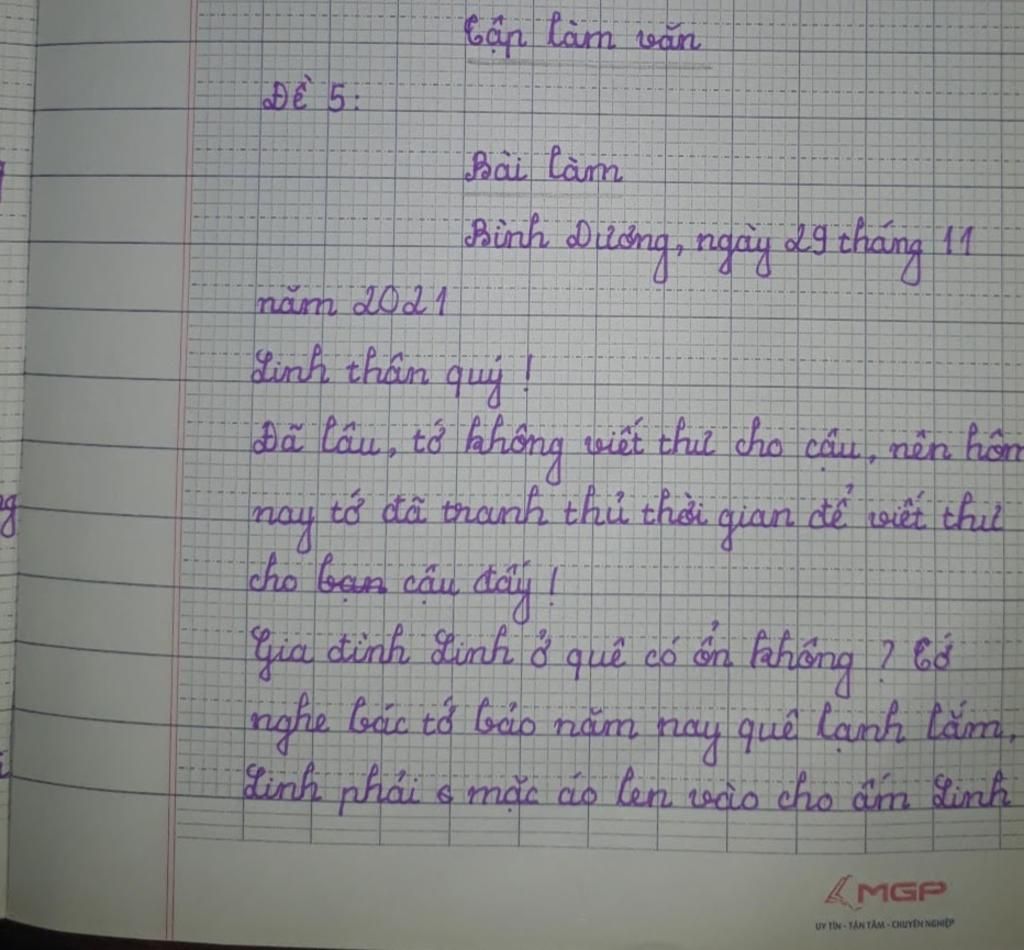 Tập làm văn
Đề 5:
Bài làm
Bình Dương, ngày 29 tháng 11
năm 2021
Linh thân quý !
Đã lâu, tớ không viết thư cho cậu, nên hôm
nay tớ đã tranh thủ thời gian để viết thư
cho bạn cậu đấy !
Gia đình Linh ở quê có ổn không ? Tớ
nghe bác tớ bảo năm nay quê lạnh lắm,
Linh phải mặc áo len vào cho ấm Linh
MGP
UY TÍN - TẬN TÂM - CHUYÊN NGHIỆP